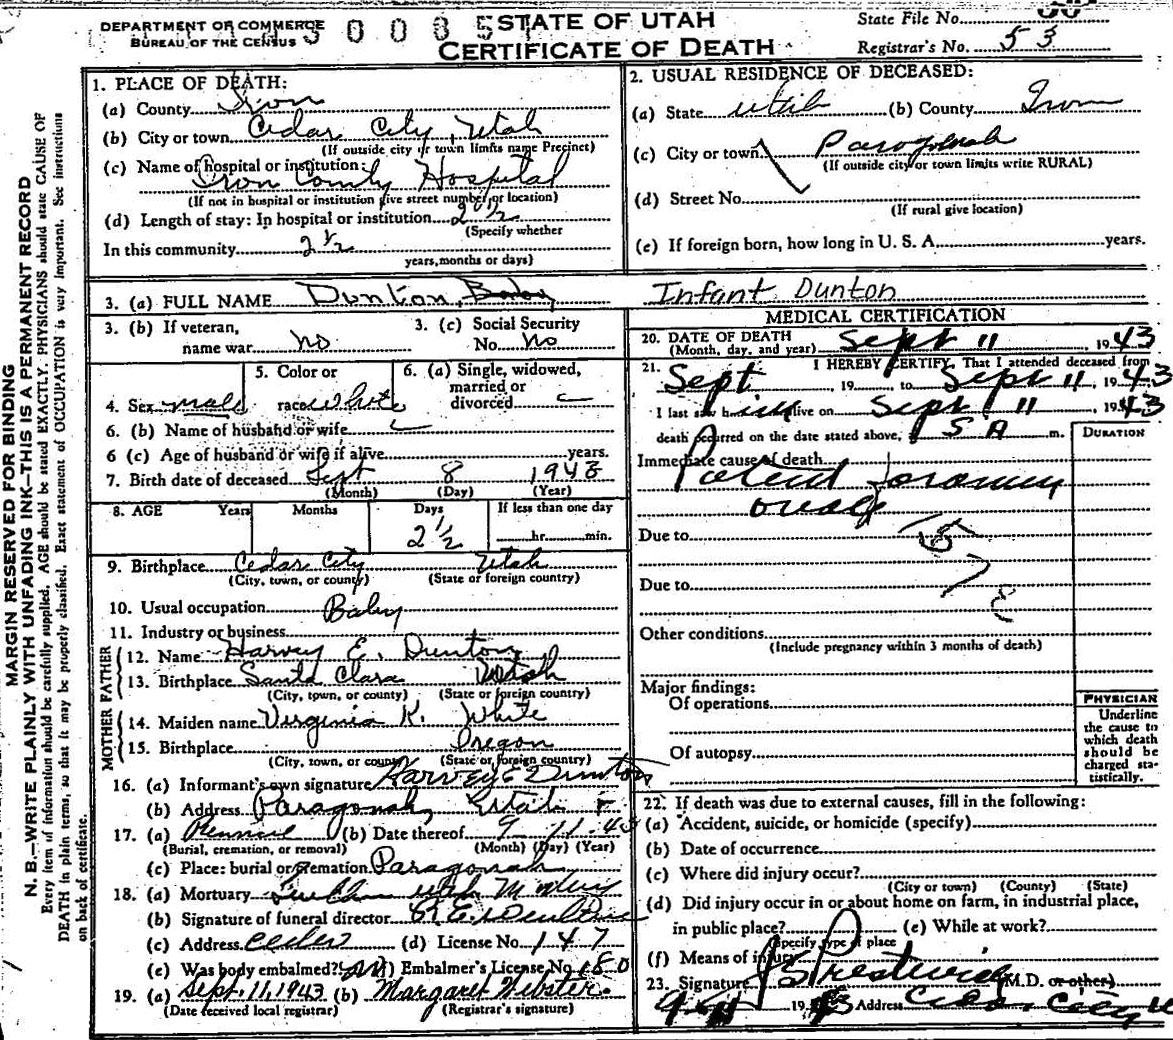 DEPARTMENT OF COMMERCE
BUREAU OF THE CENSUS
STATE OF UTAH
CERTIFICATE OF DEATH
State File No.
Registrar's No. 53
MARGIN RESERVED FOR BINDING
N. B.—WRITE PLAINLY WITH UNFADING INK—THIS IS A PERMANENT RECORD
Every item of information should be carefully supplied. AGE should be stated EXACTLY. PHYSICIANS should state CAUSE OF
DEATH in plain terms, so that it may be properly classified. Exact statement of OCCUPATION is very important. See instructions
on back of certificate.
1. PLACE OF DEATH:
(a) County Iron
(b) City or town Cedar City, Utah
(If outside city or town limits name Precinct)
(c) Name of hospital or institution:
Iron County Hospital
(If not in hospital or institution give street number or location)
(d) Length of stay: In hospital or institution 2 1/2
(Specify whether
In this community 2 1/2
years, months or days)
2. USUAL RESIDENCE OF DECEASED:
(a) State Utah (b) County Iron
(c) City or town Paragonah
(If outside city or town limits write RURAL)
(d) Street No.
(If rural give location)
(e) If foreign born, how long in U. S. A. years.
3. (a) FULL NAME Dunton, Baby Infant Dunton
3. (b) If veteran, name war no
3. (c) Social Security No. no
4. Sex male
5. Color or race White
6. (a) Single, widowed, married or divorced
6. (b) Name of husband or wife
6 (c) Age of husband or wife if alive years.
7. Birth date of deceased Sept 8 1943
(Month) (Day) (Year)
8. AGE Years Months Days If less than one day
2 1/2 hr. min.
9. Birthplace Cedar City Utah
(City, town, or county) (State or foreign country)
10. Usual occupation Baby
11. Industry or business
FATHER
12. Name Harvey E. Dunton
13. Birthplace Santa Clara Utah
(City, town, or county) (State or foreign country)
MOTHER
14. Maiden name Virginia K. White
15. Birthplace Oregon
(City, town, or county) (State or foreign country)
16. (a) Informant's own signature Harvey E Dunton
(b) Address Paragonah, Utah
17. (a) (b) Date thereof 9 11-43
(Burial, cremation, or removal) (Month) (Day) (Year)
(c) Place: burial or cremation Paragonah
18. (a) Mortuary Utah
(b) Signature of funeral director
(c) Address Cedar (d) License No. 147
(e) Was body embalmed? (f) Embalmer's License No. 180
19. (a) Sept. 11, 1943 (b) Margaret Webster
(Date received local registrar) (Registrar's signature)
MEDICAL CERTIFICATION
20. DATE OF DEATH Sept 11, 1943
(Month, day, and year)
21. I HEREBY CERTIFY, That I attended deceased from
Sept, 19 to Sept 11, 1943
I last saw him alive on Sept 11 1943
death occurred on the date stated above, 5 A m.
DURATION
Immediate cause of death Patent foramen
ovale
Due to
Due to
Other conditions
(Include pregnancy within 3 months of death)
Major findings:
Of operations
Of autopsy
PHYSICIAN
Underline
the cause to
which death
should be
charged sta-
tistically.
22. If death was due to external causes, fill in the following:
(a) Accident, suicide, or homicide (specify)
(b) Date of occurrence
(c) Where did injury occur?
(City or town) (County) (State)
(d) Did injury occur in or about home on farm, in industrial place,
in public place? (e) While at work?
(Specify type of place
(f) Means of injury
23. Signature J S Prestwich (M.D. or other)
1943 Address Cedar City U